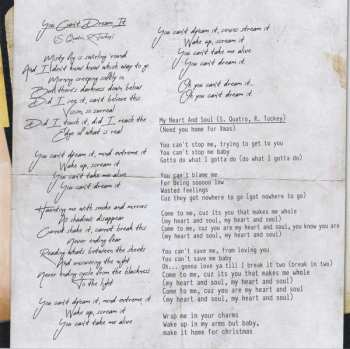 You Can't Dream It
(S. Quatro, R. Tuckey)
Misty fog is swirling round
And I don't know know which way to go
Morning creeping softly in
But there's darkness down below
Did I say it, can't believe this
Vision so surreal
Did I touch it, did I reach the
Edge of what is real
You can't dream it, mind extreme it
Wake up, scream it
You can't take me alive
You can't dream it
Haunting me with smoke and mirrors
As shadows disappear
Cannot shake it, cannot break this
Never ending fear
Reading whats between the sheets
And uncovering the night
Never ending cycle from the blackness
To the light
You can't dream it, mind extreme it
Wake up, scream it
You can't take me alive
You can't dream it, cause stream it
Wake up, scream it
You can't take me alive
You can't dream it
Oh you can't dream it...
Oh you can't dream it
My Heart And Soul (S. Quatro, R. Tuckey)
(Need you home for Xmas)
You can't stop me, trying to get to you
You can't stop me baby
Gotta do what I gotta do (do what I gotta do)
You can't blame me
For being sooooo low
Wasted feelings
Cuz they got nowhere to go (got nowhere to go)
Come to me, cuz its you that makes me whole
(my heart and soul, my heart and soul)
Come to me, cuz you are my heart and soul, you know you are
(my heart and soul, my heart and soul)
You can't save me, from loving you
You can't save me baby
Oh... gonna love ya till I break it two (break in two)
Come to me, cuz its you that makes me whole
(my heart and soul, my heart and soul)
Come to me, cuz you are my heart and soul
(my heart and soul, my heart and soul)
Wrap me in your charms
Wake up in my arms but baby,
make it home for christmas